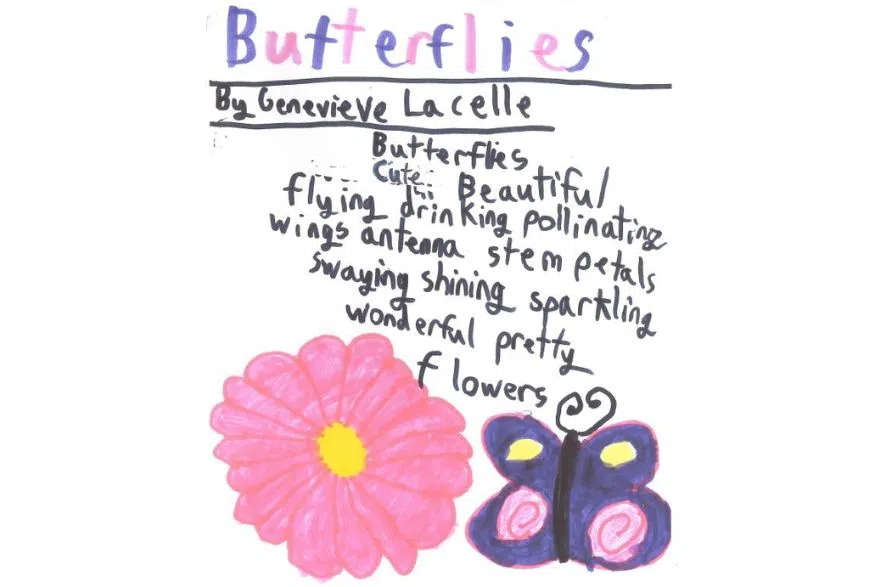 Butterflies
By Genevieve Lacelle
Butterflies
Cute Beautiful
flying drinking pollinating
wings antenna stem petals
swaying shining sparkling
wonderful pretty
flowers